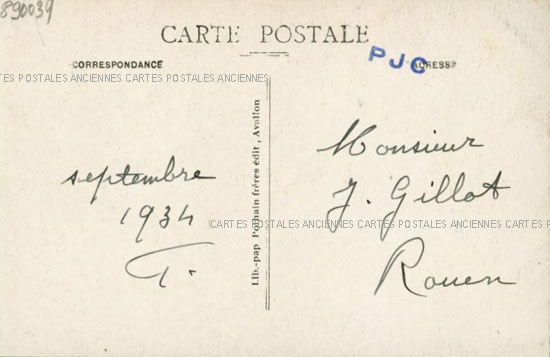 890039
CARTE POSTALE
CORRESPONDANCE
PJC
ADRESSE
CARTES POSTALES ANCIENNES CARTES POSTALES ANCIENNES
septembre
1934
T.
Lib.-pap Pothain frères édit, Avallon
Monsieur
J. Gillot
CARTES POSTALES ANCIENNES CARTES POSTALES ANCIENNES CARTES
Rouen